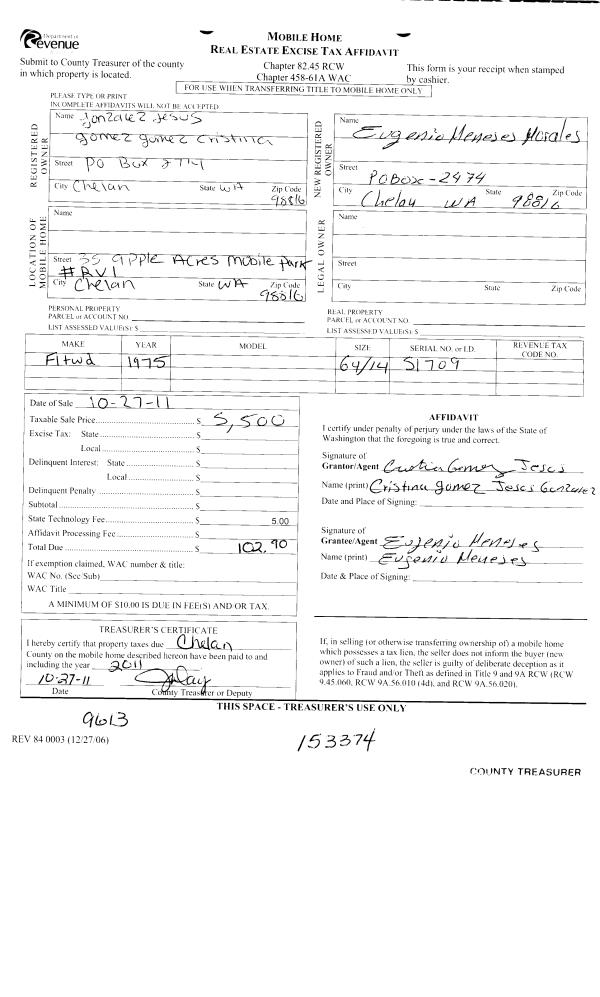 Department of
Revenue
MOBILE HOME
REAL ESTATE EXCISE TAX AFFIDAVIT
Submit to County Treasurer of the county
in which property is located.
Chapter 82.45 RCW
Chapter 458-61A WAC
This form is your receipt when stamped
by cashier.
FOR USE WHEN TRANSFERRING TITLE TO MOBILE HOME ONLY
PLEASE TYPE OR PRINT
INCOMPLETE AFFIDAVITS WILL NOT BE ACCEPTED
REGISTERED OWNER
Name Gonzalez Jesus
gomez gomez Cristina
Street PO Box 2774
City Chelan State WA Zip Code
98816
NEW REGISTERED OWNER
Name
Eugenio Meneses Morales
Street
PO Box - 2474
City State Zip Code
Chelan WA 98816
LOCATION OF MOBILE HOME
Name
Street 35 Apple Acres Mobile Park
#RV1
City Chelan State WA Zip Code
98816
LEGAL OWNER
Name
Street
City State Zip Code
PERSONAL PROPERTY
PARCEL or ACCOUNT NO.
LIST ASSESSED VALUE(S): $
REAL PROPERTY
PARCEL or ACCOUNT NO.
LIST ASSESSED VALUE(S): $
MAKE YEAR MODEL SIZE SERIAL NO. or I.D. REVENUE TAX CODE NO.
Fltwd 1975 64/14 S1709
Date of Sale 10-27-11
Taxable Sale Price $ 5,500
Excise Tax: State $
Local $
Delinquent Interest: State $
Local $
Delinquent Penalty $
Subtotal $
State Technology Fee $ 5.00
Affidavit Processing Fee $
Total Due $ 102.90
If exemption claimed, WAC number & title:
WAC No. (Sec Sub)
WAC Title
A MINIMUM OF $10.00 IS DUE IN FEE(S) AND OR TAX.
AFFIDAVIT
I certify under penalty of perjury under the laws of the State of
Washington that the foregoing is true and correct.
Signature of
Grantor/Agent Cristina Gomez Jesus
Name (print) Cristina gomez Jesus Gonzalez
Date and Place of Signing:
Signature of
Grantee/Agent Eugenio Meneses
Name (print) Eugenio Meneses
Date & Place of Signing:
TREASURER'S CERTIFICATE
I hereby certify that property taxes due Chelan
County on the mobile home described hereon have been paid to and
including the year 2011
10-27-11
Date County Treasurer or Deputy
If, in selling (or otherwise transferring ownership of) a mobile home
which possesses a tax lien, the seller does not inform the buyer (new
owner) of such a lien, the seller is guilty of deliberate deception as it
applies to Fraud and/or Theft as defined in Title 9 and 9A RCW (RCW
9.45.060, RCW 9A.56.010 (4d), and RCW 9A.56.020).
THIS SPACE - TREASURER'S USE ONLY
9613
REV 84 0003 (12/27/06)
153374
COUNTY TREASURER